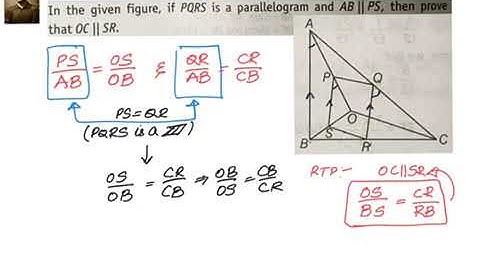 In the given figure, if PQRS is a parallelogram and AB || PS, then prove
that OC || SR.
PS/AB = OS/OB & QR/AB = CR/CB
PS=QR
(PQRS is a ||gm)
↓
OS/OB = CR/CB ⇒ OB/OS = CB/CR
RTP:- OC||SR
OS/BS = CR/RB
A
P
Q
O
S
B
R
C